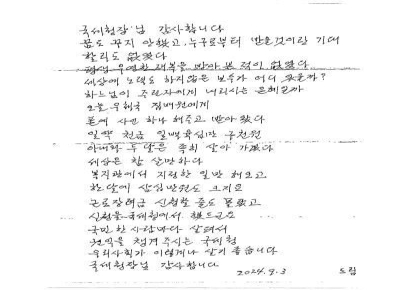 국세청장님 감사합니다
꿈도 꾸지 안했고, 누구로부터 받을것이란 기대
할리도 없었다
평생 우연한 행복을 받아 본 적이 없었다
세상에 노력도 하지않은 보수가 어디 있을까?
하느님이 주린자에게 내리시는 은혜일까
오늘 우체국 집배원에게
폰에 사인 하나 해주고 받아 왔다
일백 천금 일백육십만 구천원
아내와 두 달은 족히 살아 가겠다
세상은 참 살만하다
복지관에서 지정한 일만 해오고
한달에 삼십만원도 크지요
근로장려금 신청할 줄도 몰랐고
신청을 국세청에서 했드군요
국민 한 사람마다 살펴서
권익을 챙겨 주시는 국세청
우리사회가 이렇게나 살기 좋습니다
국세청장님 감사합니다
2024. 9. 3 드림